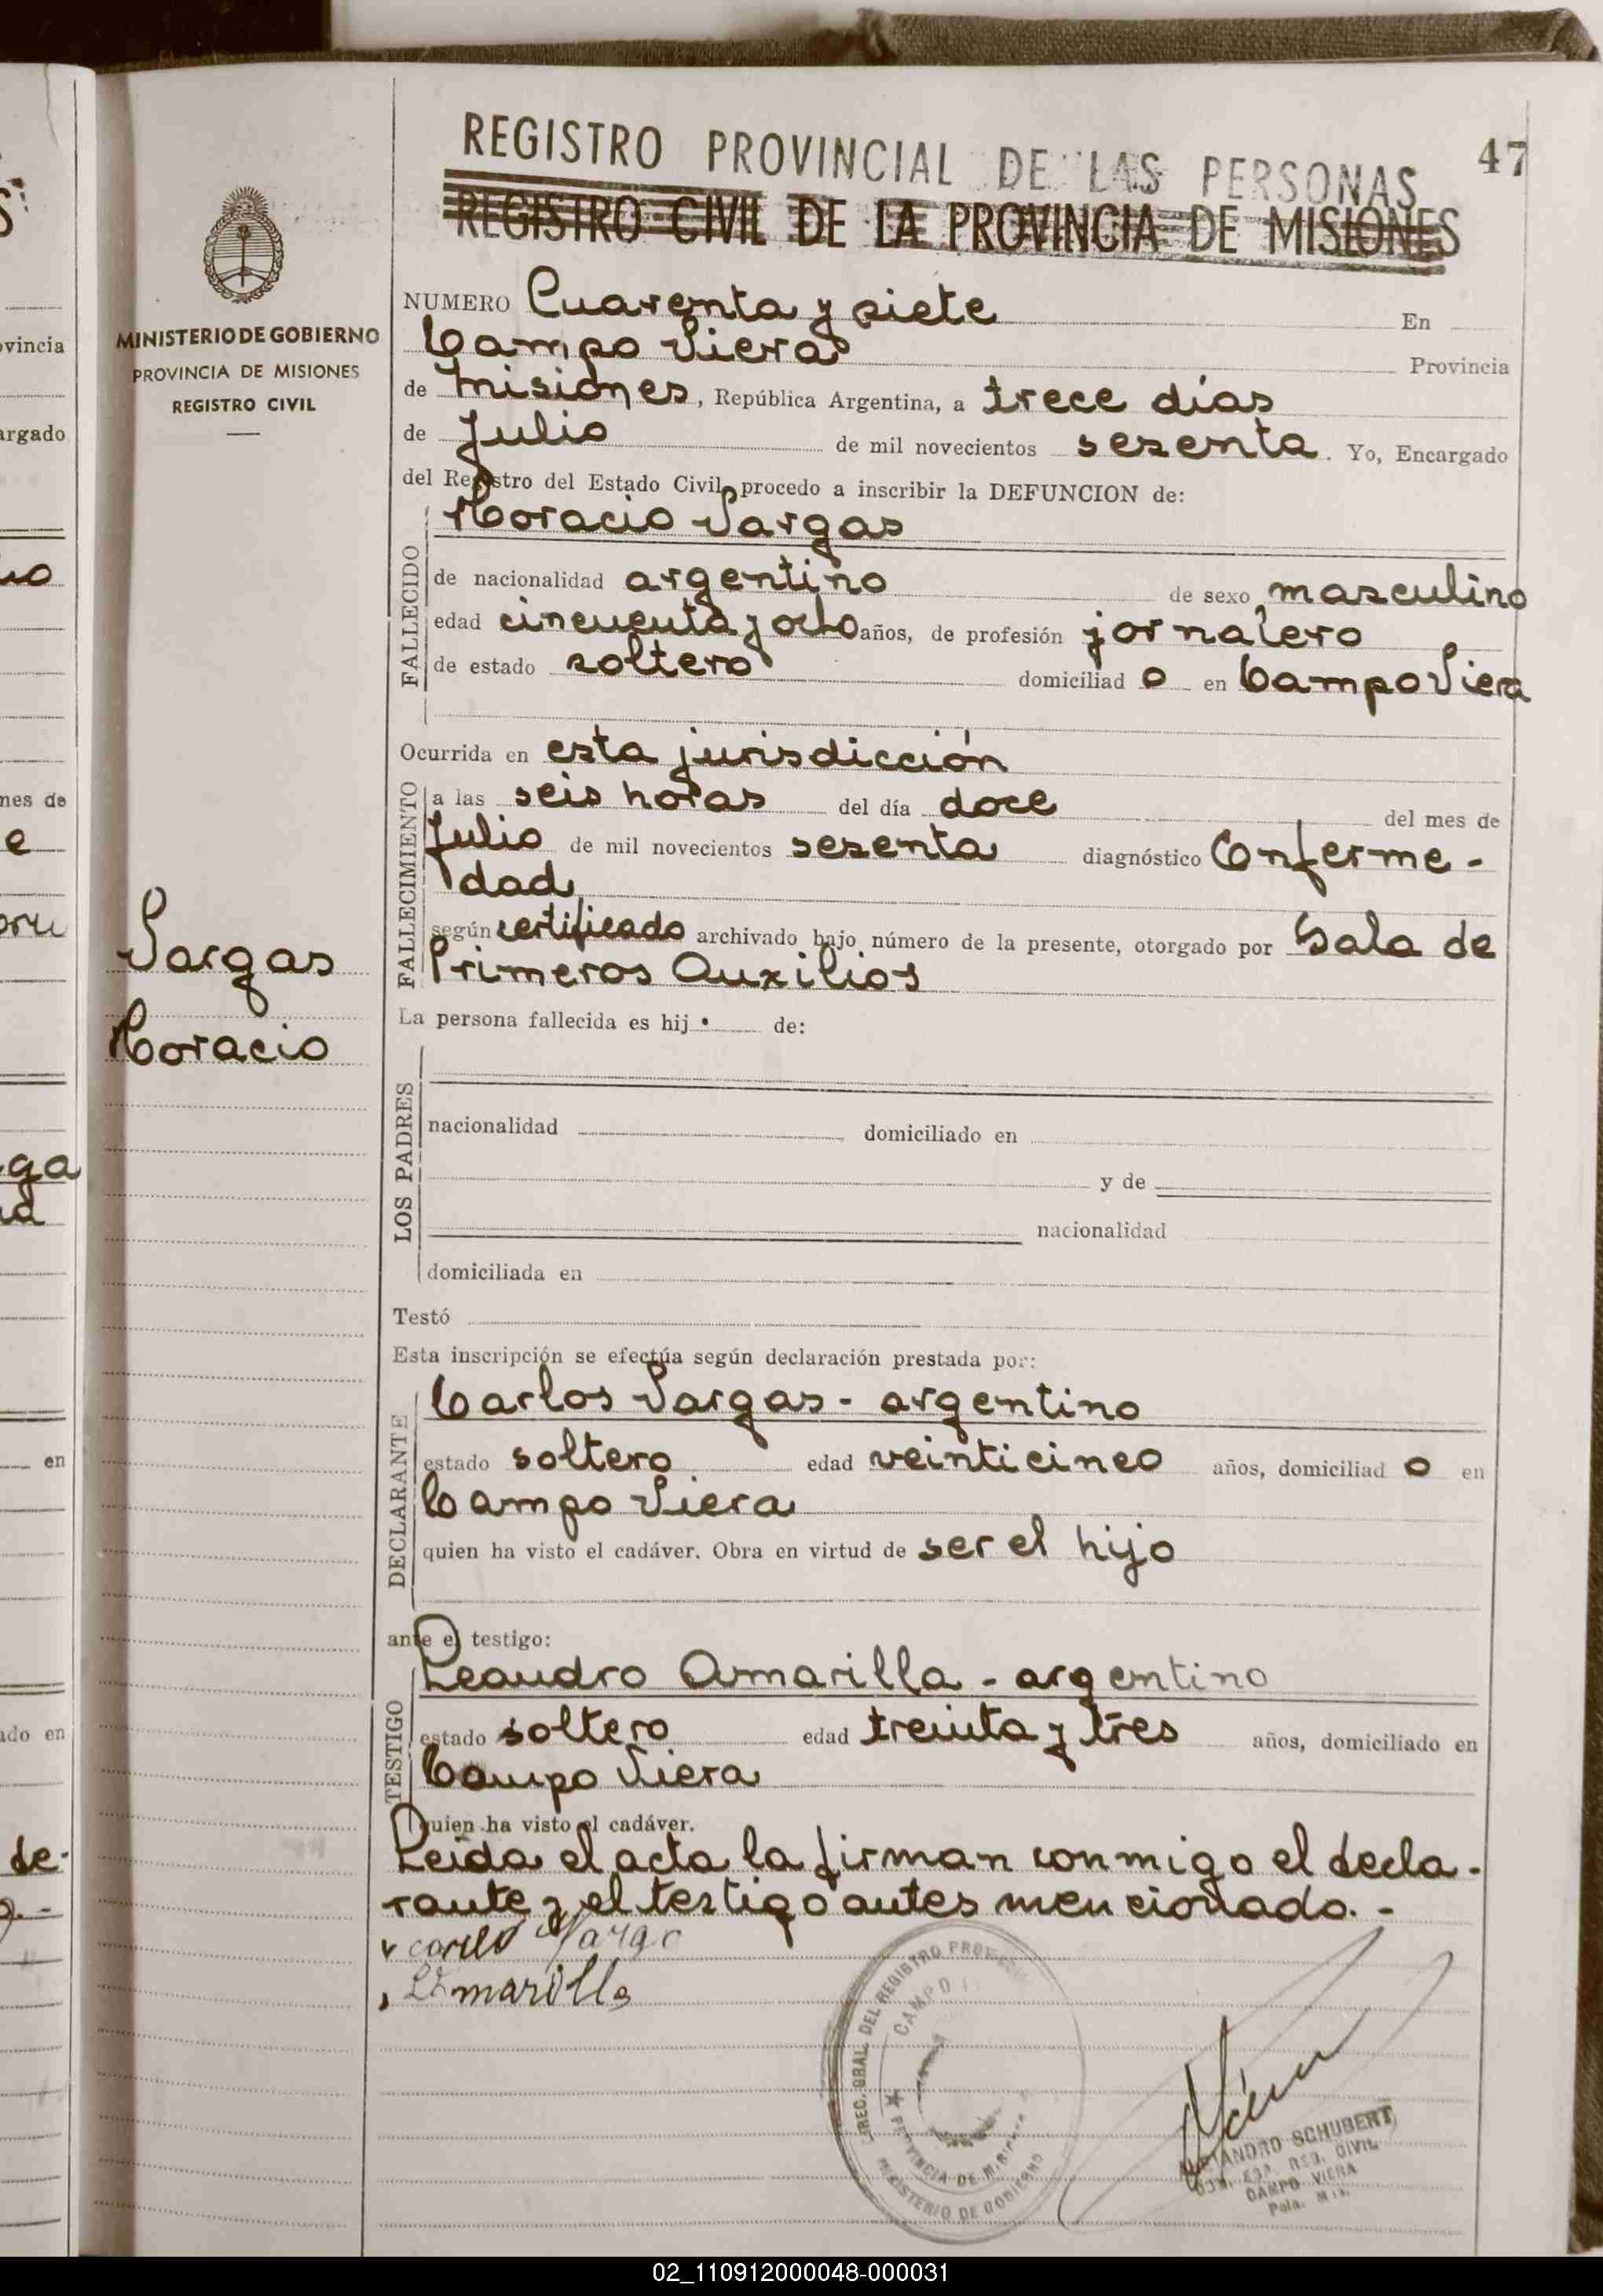 REGISTRO PROVINCIAL DE LAS PERSONAS
47
REGISTRO CIVIL DE LA PROVINCIA DE MISIONES
MINISTERIO DE GOBIERNO
PROVINCIA DE MISIONES
REGISTRO CIVIL
NUMERO Cuarenta y siete En
Campo Viera Provincia
de Misiones, República Argentina, a trece días
de Julio de mil novecientos sesenta. Yo, Encargado
del Registro del Estado Civil, procedo a inscribir la DEFUNCION de:
FALLECIDO
Horacio Vargas
de nacionalidad argentino de sexo masculino
edad cincuenta y ocho años, de profesión jornalero
de estado soltero domiciliad o en Campo Viera
Ocurrida en esta jurisdicción
FALLECIMIENTO
a las seis horas del día doce del mes de
Julio de mil novecientos sesenta diagnóstico Enferme-
dad
según certificado archivado bajo número de la presente, otorgado por Sala de
Primeros Auxilios
Vargas
Horacio
La persona fallecida es hij de:
LOS PADRES
nacionalidad domiciliado en
y de
nacionalidad
domiciliada en
Testó
Esta inscripción se efectúa según declaración prestada por:
DECLARANTE
Carlos Vargas - argentino
estado soltero edad veinticinco años, domiciliad o en
Campo Viera
quien ha visto el cadáver. Obra en virtud de ser el hijo
ante el testigo:
TESTIGO
Leandro Amarilla - argentino
estado soltero edad treinta y tres años, domiciliado en
Campo Viera
quien ha visto el cadáver.
Leida el acta la firman conmigo el decla-
rante y el testigo antes mencionado. -
Amarilla
DIREC. GRAL. DEL REGISTRO PROVINCIAL
CAMPO
PROVINCIA DE MISIONES
MINISTERIO DE GOBIERNO
SCHUBERT
REG. CIVIL
CAMPO VIERA
Pcia. Mis.
vincia
argado
mes de
e
ga
en
ado en
de
02_110912000048-000031